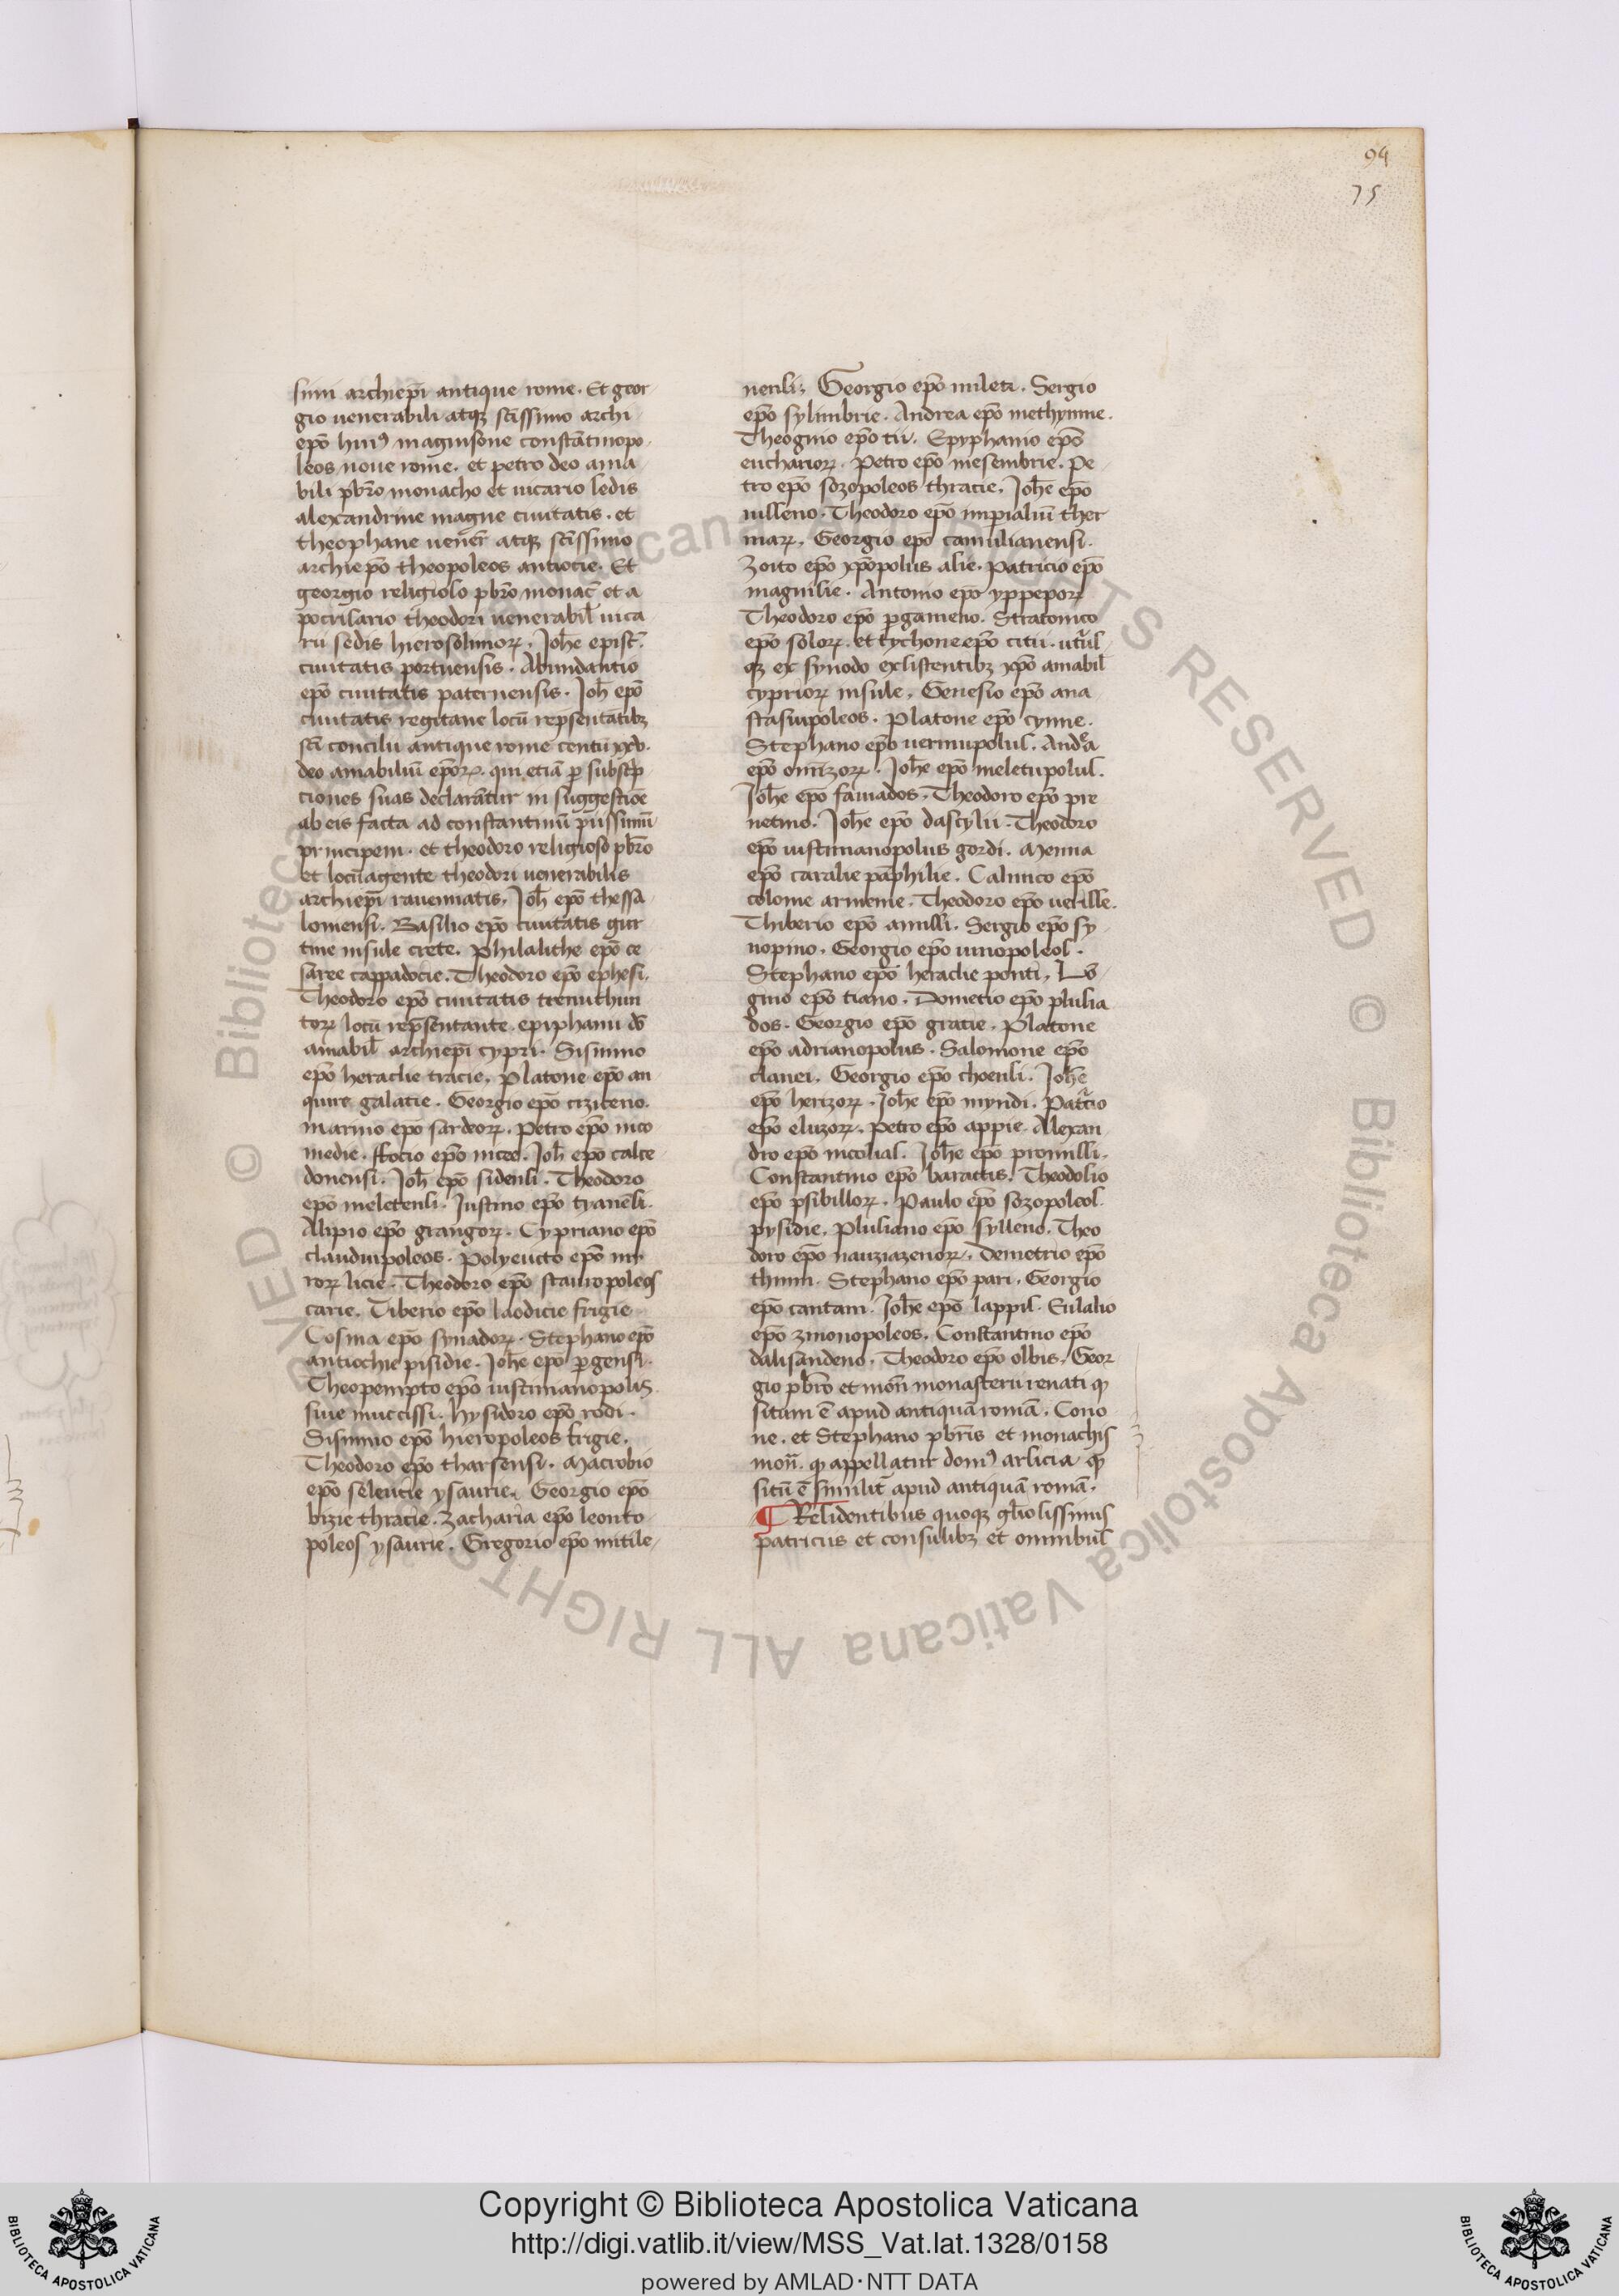 94
75
simi archiepi antique rome. Et geor
gio uenerabili atq; scissimo archi
epo hui9 maginsone constatinopo
leos noue rome. et petro deo ama
bili pbro monacho et uicario sedis
alexandrine magne ciuitatis. et
theophane uener atq; scissimo
archiepo theopoleos antiocie. Et
georgio religioso pbro monac et a
pocrisario theodori uenerabil uica
rii sedis hierosolimoꝝ. Johe epist
ciuitatis portuensis. Abundantio
epo ciuitatis paternensis. Joh epo
ciuitatis regitane locū repsentatibꝫ
sci concilii antique rome centū xxv.
deo amabiliū epoꝝ. qui etiā p subscp
ciones suas declarātur in suggestioe
ab eis facta ad constantinū piissimū
principem. et theodoro religioso pbro
et locūagente theodori uenerabilis
archiepi rauennatis. Joh epo thessa
lonensi. Basilio epo ciuitatis gur
tine insule crete. Philalithe epo ce
saree cappadocie. Theodoro epo ephesi.
Theodoro epo ciuitatis trenuthun
toꝝ locū repsentante. epiphanii do
amabil archiepi cypri. Sisinnio
epo heraclie tracie. Platone epo an
quire galatie. Georgio epo ciziceno.
marino epo sardeoꝝ. Petro epo nico
medie. ffocio epo nicee. Joh epo calce
donensi. Joh epo sidensi. Theodoro
epo meletensi. Justino epo tyanesi.
Alipio epo grangoꝝ. Cypriano epo
claudiupoleos. Polyeucto epo mir
roꝝ licie. Theodoro epo stauropoleos
carie. Tiberio epo laodicie frigie
Cosma epo synadoꝝ. Stephano epo
antiochie pisidie. Johe epo pgensi.
Theopempto epo iustinianopolis
siue muccissi. hysidoro epo rodi.
Sisinnio epo hieropoleos frigie.
Theodoro epo tharsensi. Macrobio
epo seleucie ysaurie. Georgio epo
bizie thracie. Zacharia epo leonto
poleos ysaurie. Gregorio epo mitile
nensi; Georgio epo mileti. Sergio
epo sylimbrie. Andrea epo methymne.
Theognio epo tii. Epyphanio epo
euchaitoꝝ. Petro epo mesembrie. Pe
tro epo sozopoleos thracie. Johe epo
nisseno. Theodoro epo impialiū ther
maꝝ. Georgio epo camulianensi.
Zoito epo xpopolus asie. Patricio epo
magnisie. Antonio epo yppepoꝝ
Theodoro epo pgameno. Stratonico
epo soloꝝ. et tychone epo citii. utrisl
qꝫ ex synodo existentibꝫ xpo amabil
cyprioꝝ insule. Genesio epo ana
stasiupoleos. Platone epo cynne.
Stephano epo uerinupolul. Andrea
epo omizoꝝ. Johe epo meletupolul.
Johe epo famados. Theodoro epo pre
netino. Johe epo dascylii. Theodoro
epo iustinianopolus gordi. Menna
epo caralie paphilie. Calinico epo
colonie armenie. Theodoro epo uerisse.
Thiberio epo amissi. Sergio epo sy
nopino. Georgio epo iunopoleos.
Stephano epo heraclie ponti. Lo
gino epo tiano. Dometio epo plusia
dos. Georgio epo gratie. Platone
epo adrianopolus. Salomone epo
clanei. Georgio epo choensi. Johe
epo herizoꝝ. Johe epo myndi. Patcio
epo eluzoꝝ. Petro epo appie. Alexan
dro epo nicolial. Johe epo promissi.
Constantino epo barattis. Theodosio
epo psibilloꝝ. Paulo epo sozopoleol.
pysidie. Plusiano epo sylleno. Theo
doro epo nauziazenoꝝ. Demetrio epo
thinin. Stephano epo pari. Georgio
epo cantani. Johe epo lappil. Eulalio
epo zinonopoleos. Constantino epo
dalisandeno. Theodoro epo olbis. Geor
gio pbro et mon monasterii renati qͥ
sitam ē apud antiquā romā. Cono
ne. et Stephano pbris et monachis
mon. qͥ appellatur dom9 arsicia qͥ
sitū ē similit apud antiquā romā.
¶ Residentibus quoqꝫ gliosissimis
patriciis et consulibꝫ et omnibus
Copyright © Biblioteca Apostolica Vaticana
http://digi.vatlib.it/view/MSS_Vat.lat.1328/0158
powered by AMLAD·NTT DATA
BIBLIOTECA APOSTOLICA VATICANA
BIBLIOTECA APOSTOLICA VATICANA
© Biblioteca Apostolica Vaticana ALL RIGHTS RESERVED © Biblioteca Apostolica Vaticana ALL RIGHTS RESERVED